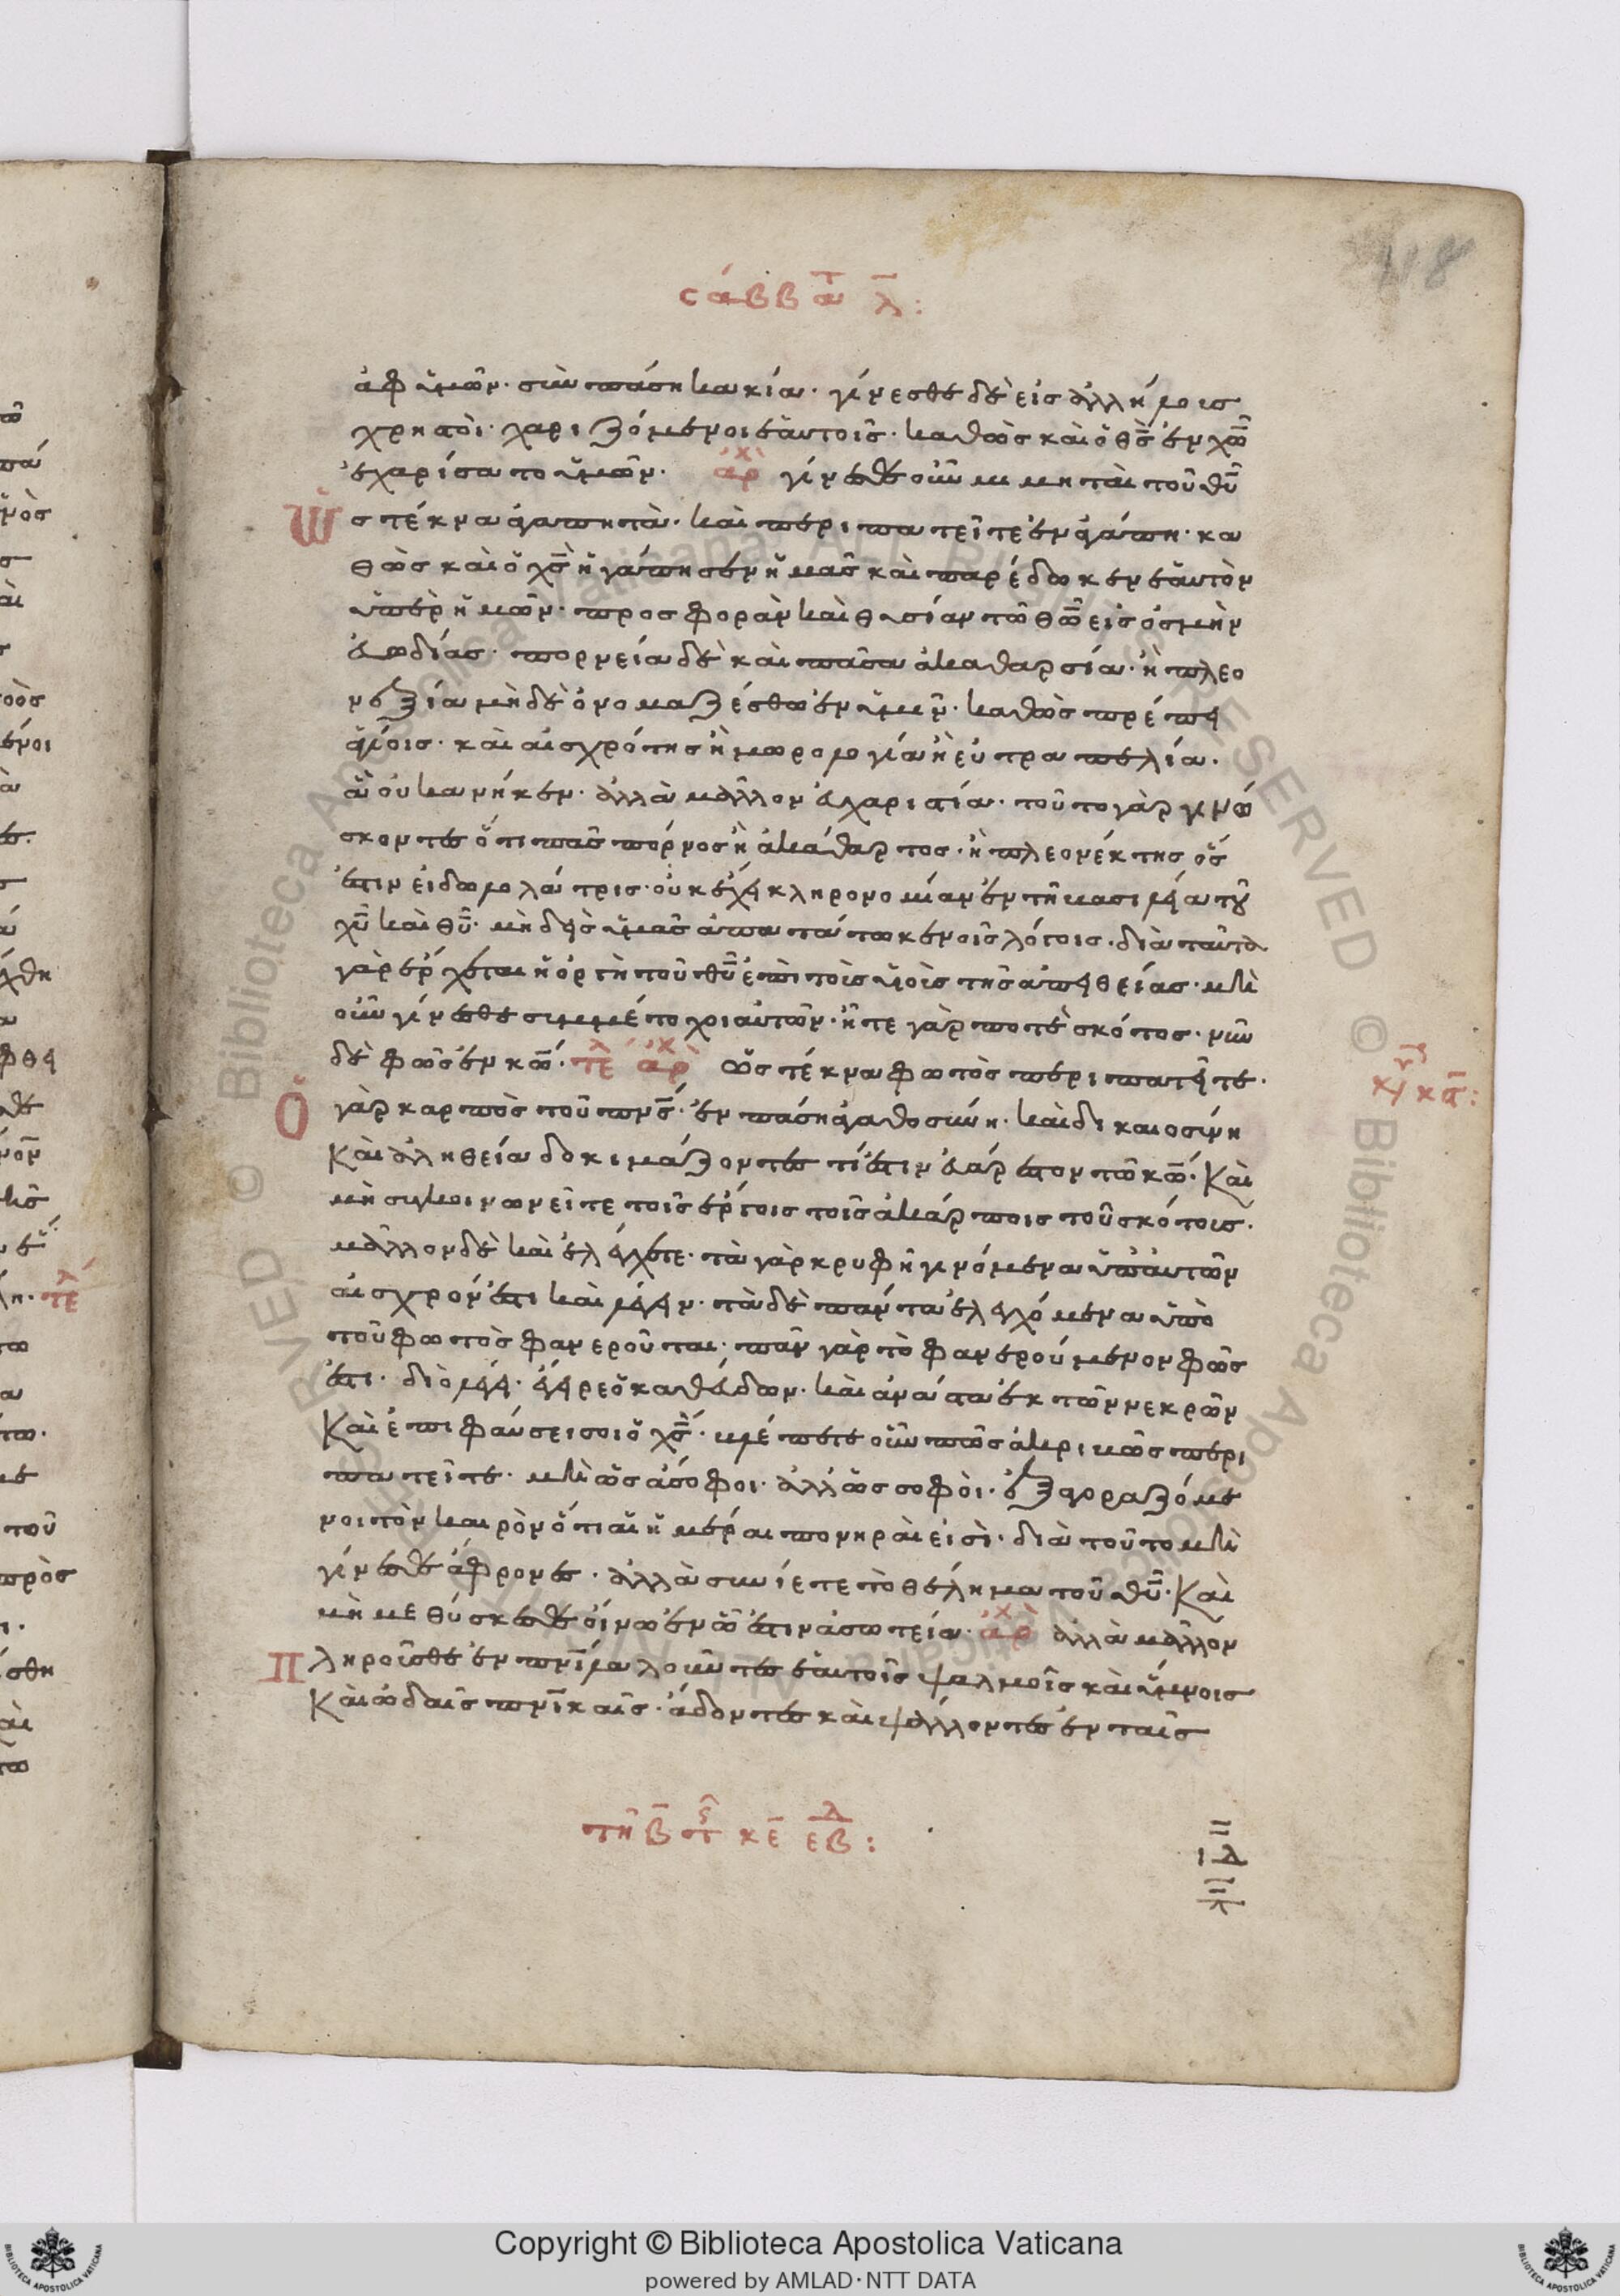 118
σάββατ λ:
ἀφ ὑμῶν· σὺν πάση κακία· γίνεσθε δὲ εἰς ἀλλήλους
χρηστοὶ· χαριζόμενοι ἑαυτοῖς· καθὼς καὶ ὁ θς ἐν χω
ἐχαρίσατο ὑμῶν· ἀρχ γίνεσθε οὖν μιμηταὶ τοῦ θυ
Ὡς τέκνα ἀγαπητὰ· καὶ περιπατεῖτε ἐν ἀγάπη· κα
θὼς καὶ ὁ χς ἠγάπησεν ἡμᾶς καὶ παρέδωκεν ἑαυτὸν
ὑπὲρ ἡμῶν· προσφορὰν καὶ θυσίαν τῶ θω εἰς ὀσμὴν
εὐωδίας· πορνεία δὲ καὶ πᾶσα ἀκαθαρσία· ἢ πλεο
νεξία μὴ δὲ ὀνομαζέσθω ἐν ὑμῖν· καθὼς πρέπει
ἁγίοις· καὶ αἰσχρότης ἢ μωρολογία ἢ εὐτραπελία·
ἃ οὐκ ἀνῆκεν· ἀλλὰ μᾶλλον εὐχαριστία· τοῦτο γὰρ γινώ
σκοντες ὅτι πᾶς πόρνος ἢ ἀκάθαρτος· ἢ πλεονέκτης ὅς
ἐστιν εἰδωλολάτρις· οὐκ ἔχει κληρονομίαν ἐν τῆ βασιλεία τοῦ
χυ καὶ θυ· μηδεὶς ὑμᾶς ἀπατάτω κενοῖς λόγοις· διὰ ταῦτα
γὰρ ἔρχεται ἡ ὀργὴ τοῦ θυ ἐπὶ τοὺς υἱοὺς τῆς ἀπειθείας· μὴ
οὖν γίνεσθε συμμέτοχοι αὐτῶν· ἦτε γὰρ ποτὲ σκότος· νῦν
δὲ φῶς ἐν κω· τελ ἀρχ ὡς τέκνα φωτὸς περιπατεῖτε·
Ὁ γὰρ καρπὸς τοῦ πνς· ἐν πάση ἀγαθοσύνη· καὶ δικαιοσύνη
καὶ ἀληθεία δοκιμάζοντες τί ἐστιν εὐάρεστον τῶ κω· καὶ
μὴ συγκοινωνεῖτε τοῖς ἔργοις τοῖς ἀκάρποις τοῦ σκότους·
μᾶλλον δὲ καὶ ἐλέγχετε· τὰ γὰρ κρυφῆ γινόμενα ὑπ' αὐτῶν
αἰσχρόν ἐστι καὶ λέγειν· τὰ δὲ πάντα ἐλεγχόμενα ὑπὸ
τοῦ φωτὸς φανεροῦται· πᾶν γὰρ τὸ φανερούμενον φῶς
ἐστι· διὸ λέγει· ἔγειρε ὁ καθεύδων· καὶ ἀνάστα ἐκ τῶν νεκρῶν
καὶ ἐπιφαύσει σοι ὁ χς· βλέπετε οὖν πῶς ἀκριβῶς περι
πατεῖτε· μὴ ὡς ἄσοφοι· ἀλλ' ὡς σοφοὶ· ἐξαγοραζόμε
νοι τὸν καιρὸν ὅτι αἱ ἡμέραι πονηραὶ εἰσὶ· διὰ τοῦτο μὴ
γίνεσθε ἄφρονες· ἀλλὰ συνίετε τὸ θέλημα τοῦ θυ· καὶ
μὴ μεθύσκεσθε οἴνω ἐν ὧ ἐστιν ἀσωτεία· ἀρχ ἀλλὰ μᾶλλον
Πληροῦσθε ἐν πνι λαλοῦντες ἑαυτοῖς ψαλμοῖς καὶ ὕμνοις
καὶ ὠδαῖς πνικαῖς· ἄδοντες καὶ ψάλλοντες ἐν ταῖς
τῆ β τ κε εβδ:
Copyright © Biblioteca Apostolica Vaticana
powered by AMLAD·NTT DATA